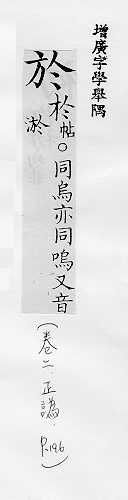 增廣字學舉隅
於 扵帖。同烏亦同嗚又音
淤
(卷二.正譌.P.196)